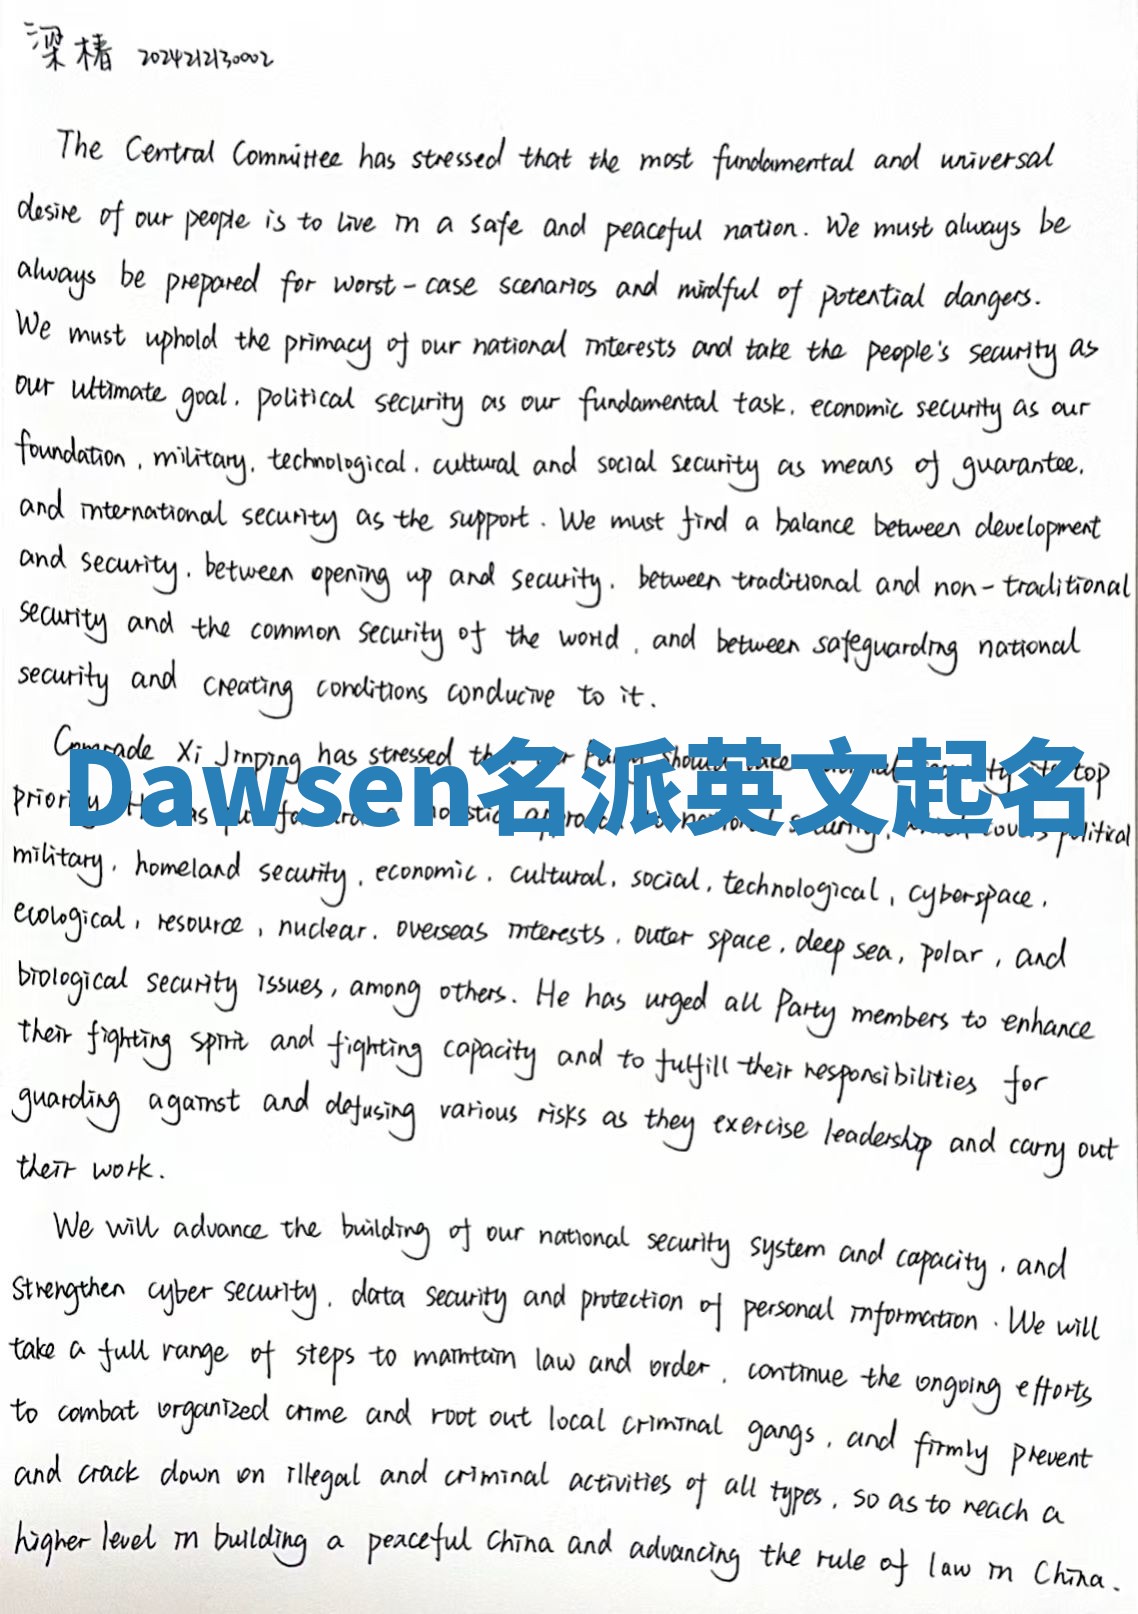 梁椿 2024212130002
The Central Committee has stressed that the most fundamental and universal
desire of our people is to live in a safe and peaceful nation. We must always be
always be prepared for worst-case scenarios and mindful of potential dangers.
We must uphold the primacy of our national interests and take the people's security as
our ultimate goal, political security as our fundamental task, economic security as our
foundation, military, technological, cultural and social security as means of guarantee,
and international security as the support. We must find a balance between development
and security, between opening up and security, between traditional and non-traditional
security and the common security of the world, and between safeguarding national
security and creating conditions conducive to it.
Comrade Xi Jinping has stressed should top
Dawsen名派英文起名
priority political
military, homeland security, economic, cultural, social, technological, cyberspace,
ecological, resource, nuclear, overseas interests, outer space, deep sea, polar, and
biological security issues, among others. He has urged all Party members to enhance
their fighting spirit and fighting capacity and to fulfill their responsibilities for
guarding against and defusing various risks as they exercise leadership and carry out
their work.
We will advance the building of our national security system and capacity, and
strengthen cyber security, data security and protection of personal information. We will
take a full range of steps to maintain law and order, continue the ongoing efforts
to combat organized crime and root out local criminal gangs, and firmly prevent
and crack down on illegal and criminal activities of all types, so as to reach a
higher level in building a peaceful China and advancing the rule of law in China.